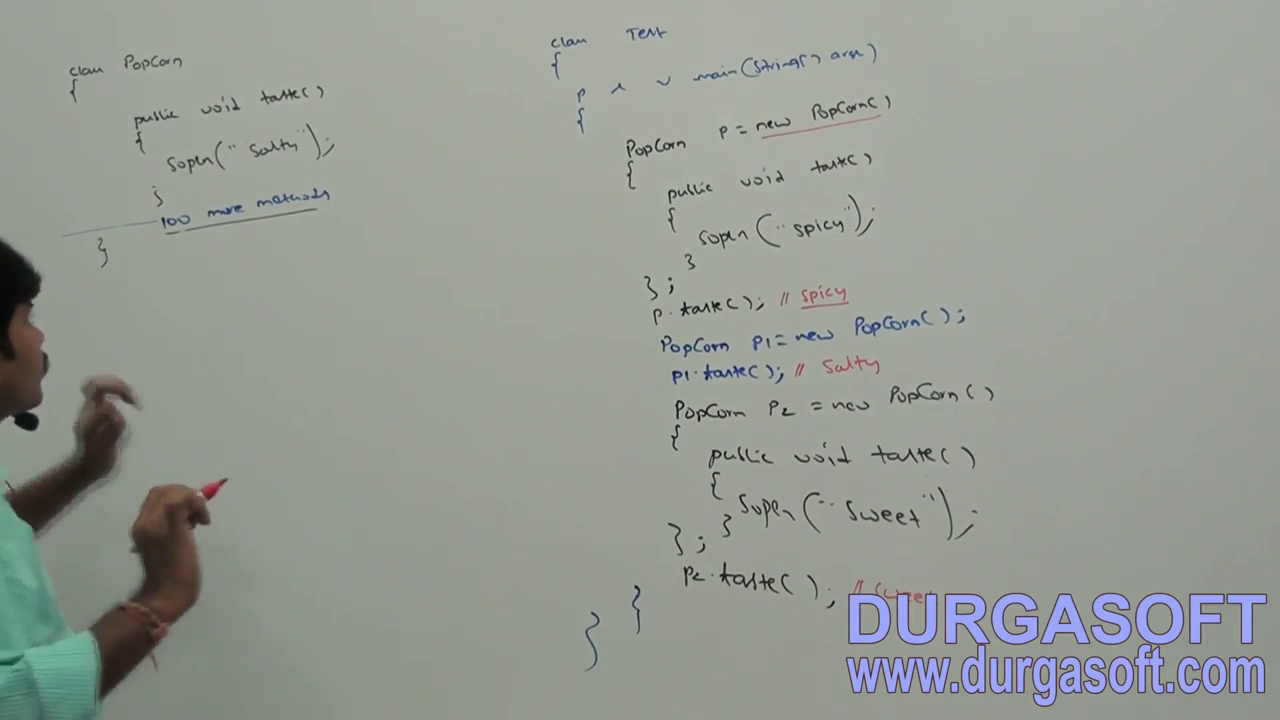 class PopCorn
{
public void taste()
{
sopln("Salty");
}
100 more methods
}
class Test
{
p s v main(String[] args)
{
PopCorn p = new PopCorn()
{
public void taste()
{
sopln("spicy");
}
};
p.taste(); // spicy
PopCorn p1 = new PopCorn();
p1.taste(); // Salty
PopCorn p2 = new PopCorn()
{
public void taste()
{
sopln("Sweet");
}
};
p2.taste(); // Sweet
}
}
DURGASOFT
www.durgasoft.com